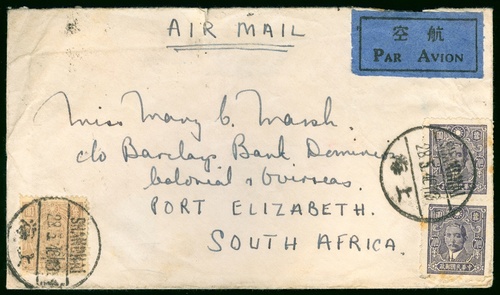 AIR MAIL
空 航
PAR AVION
Miss Mary C. Marsh.
c/o Barclays Bank Dominion
Colonial & Overseas.
PORT ELIZABETH.
SOUTH AFRICA.
SHANGHAI
海 上
海 上